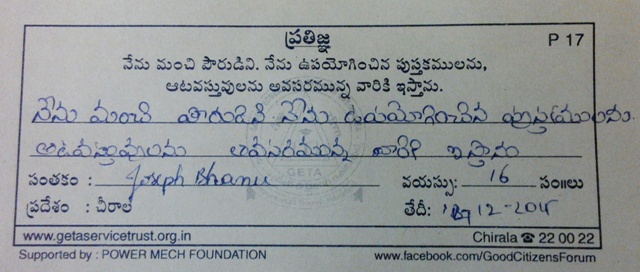 ప్రతిజ్ఞ P 17
నేను మంచి పౌరుడిని. నేను ఉపయోగించిన పుస్తకములను,
ఆటవస్తువులను అవసరమున్న వారికి ఇస్తాను.
నేను మంచి పౌరుడిని నేను ఉపయోగించిన పుస్తకములను.
ఆటవస్తువులను అవసరమున్న వారికి ఇస్తాను
GETA
సంతకం : Joseph Bhanu వయస్సు: 16 సం॥లు
ప్రదేశం : చీరాల తేదీ: 12-2015
www.getaservicetrust.org.in Chirala ☎ 22 00 22
Supported by : POWER MECH FOUNDATION www.facebook.com/GoodCitizensForum